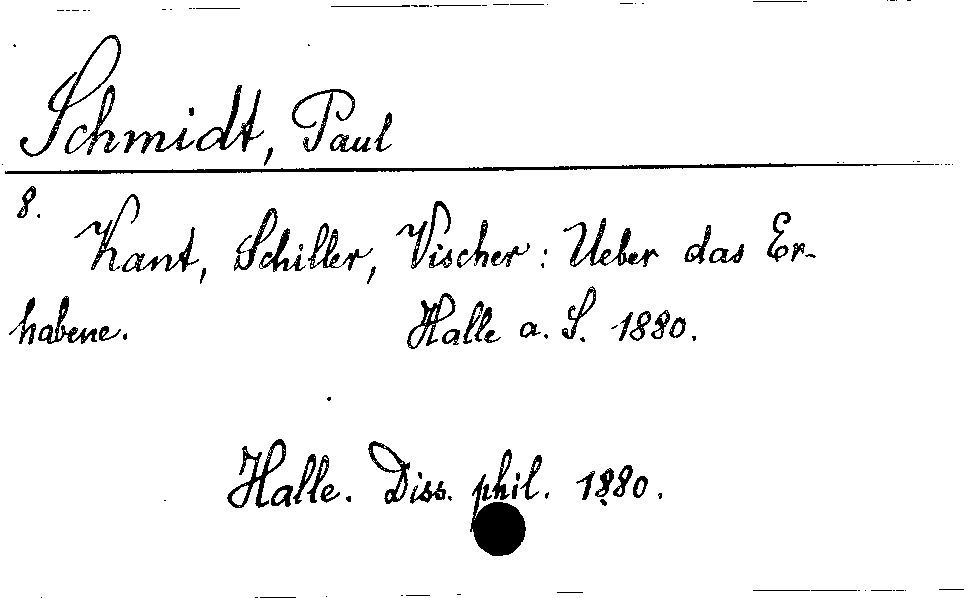 Schmidt, Paul
8.
Kant, Schiller, Vischer: Ueber das Er-
habene. Halle a. S. 1880.
Halle. Diss. phil. 1880.